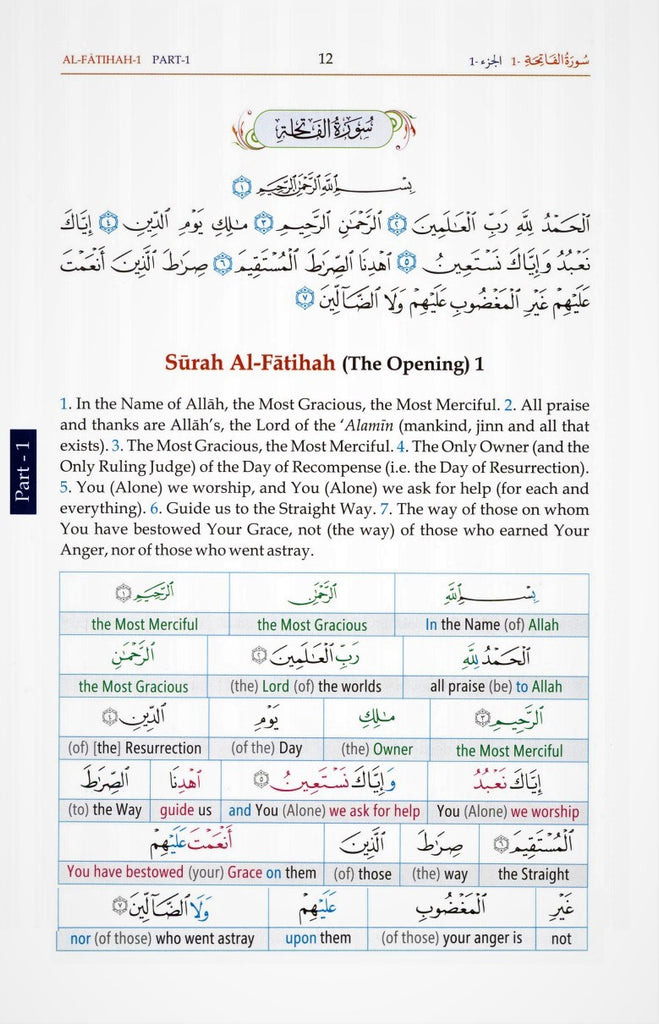 AL-FĀTIHAH-1 PART-1 12 سُورَةُ الفَاتِحَةِ -1 الجزء -1
سُورَةُ الفَاتِحَةِ
بِسْمِ ٱللَّهِ ٱلرَّحْمَٰنِ ٱلرَّحِيمِ ١
ٱلْحَمْدُ لِلَّهِ رَبِّ ٱلْعَٰلَمِينَ ٢ ٱلرَّحْمَٰنِ ٱلرَّحِيمِ ٣ مَٰلِكِ يَوْمِ ٱلدِّينِ ٤ إِيَّاكَ
نَعْبُدُ وَإِيَّاكَ نَسْتَعِينُ ٥ ٱهْدِنَا ٱلصِّرَٰطَ ٱلْمُسْتَقِيمَ ٦ صِرَٰطَ ٱلَّذِينَ أَنْعَمْتَ
عَلَيْهِمْ غَيْرِ ٱلْمَغْضُوبِ عَلَيْهِمْ وَلَا ٱلضَّآلِّينَ ٧
Sūrah Al-Fātihah (The Opening) 1
1. In the Name of Allāh, the Most Gracious, the Most Merciful. 2. All praise
and thanks are Allāh's, the Lord of the 'Alamīn (mankind, jinn and all that
exists). 3. The Most Gracious, the Most Merciful. 4. The Only Owner (and the
Only Ruling Judge) of the Day of Recompense (i.e. the Day of Resurrection).
5. You (Alone) we worship, and You (Alone) we ask for help (for each and
everything). 6. Guide us to the Straight Way. 7. The way of those on whom
You have bestowed Your Grace, not (the way) of those who earned Your
Anger, nor of those who went astray.
Part - 1
بِسْمِ ٱللَّهِ ٱلرَّحْمَٰنِ ٱلرَّحِيمِ ١
the Most Merciful the Most Gracious In the Name (of) Allah
ٱلْحَمْدُ لِلَّهِ رَبِّ ٱلْعَٰلَمِينَ ٢ ٱلرَّحْمَٰنِ
the Most Gracious (the) Lord (of) the worlds all praise (be) to Allah
ٱلرَّحِيمِ ٣ مَٰلِكِ يَوْمِ ٱلدِّينِ ٤
(of) [the] Resurrection (of the) Day (the) Owner the Most Merciful
إِيَّاكَ نَعْبُدُ وَإِيَّاكَ نَسْتَعِينُ ٥ ٱهْدِنَا ٱلصِّرَٰطَ
(to) the Way guide us and You (Alone) we ask for help You (Alone) we worship
ٱلْمُسْتَقِيمَ ٦ صِرَٰطَ ٱلَّذِينَ أَنْعَمْتَ عَلَيْهِمْ
You have bestowed (your) Grace on them (of) those (the) way the Straight
غَيْرِ ٱلْمَغْضُوبِ عَلَيْهِمْ وَلَا ٱلضَّآلِّينَ ٧
nor (of those) who went astray upon them (of those) your anger is not